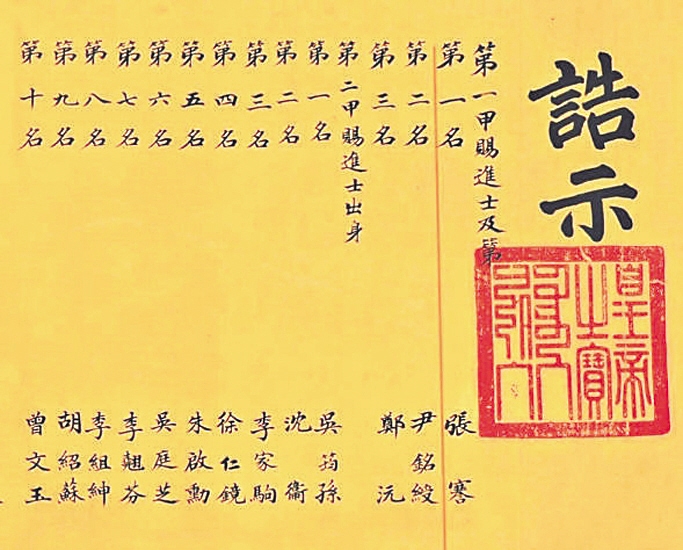 誥示
皇帝之寶
第一甲賜進士及第
第一名 張謇
第二名 尹銘綬
第三名 鄭沅
第二甲賜進士出身
第一名 吳筠孫
第二名 沈衞
第三名 李家駒
第四名 徐仁鏡
第五名 朱啟勳
第六名 吳庭芝
第七名 李翹芬
第八名 李組紳
第九名 胡紹蘇
第十名 曾文玉